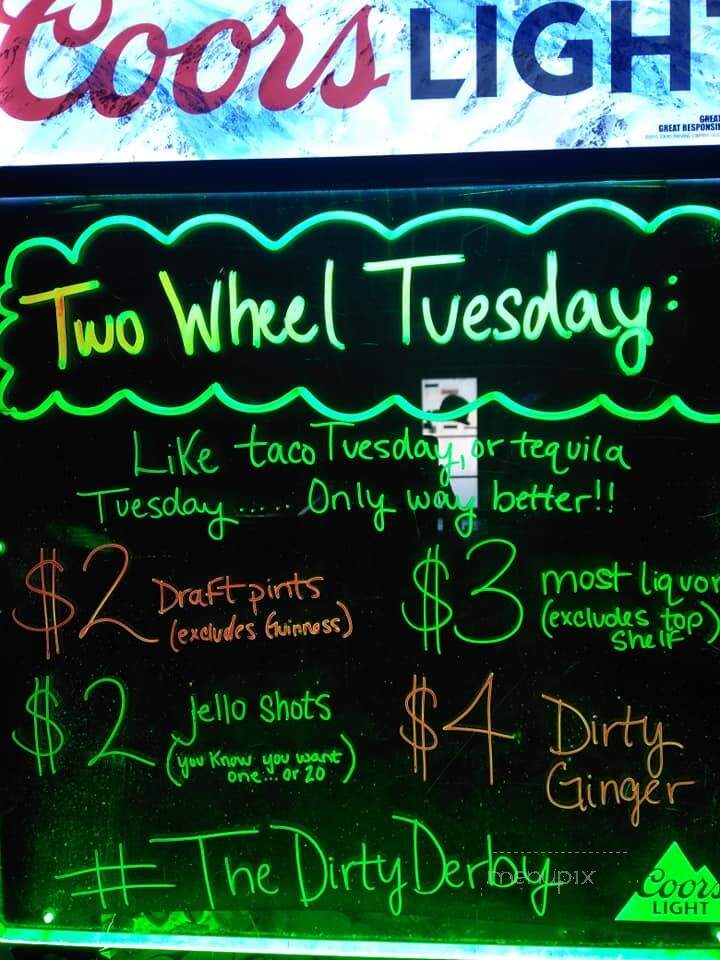 Coors LIGHT
GREAT
GREAT RESPONSI
Two Wheel Tuesday:
Like taco Tuesday, or tequila
Tuesday..... Only way better!!
$2 Draft pints
(excludes Guinness)
$3 most liquor
(excludes top
shelf)
$2 jello shots
(you know you want
one... or 20)
$4 Dirty
Ginger
#TheDirtyDerby
menupix
Coors
LIGHT